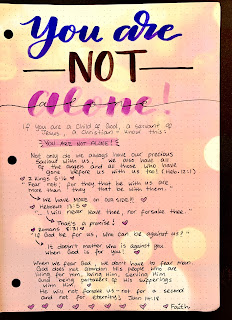 You are
NOT
alone!
If you are a Child of God, a servant of
Jesus, a Christian - know this:
YOU ARE NOT ALONE!!
Not only do we always have our precious
Saviour with us, we also have all
the angels and all those who have
gone before us with us too! (Heb. 12:1)
2 Kings 6:16
"Fear not: for they that be with us are
more than they that be with them."
WE HAVE MORE ON OUR SIDE!!
Hebrews 13:5
"I will never leave thee, nor forsake thee."
That's a promise!
Romans 8:31
"If God be for us, who can be against us?"
It doesn't matter who is against you
When God is for you!
When we fear God, we don't have to fear man.
God does not abandon His people who are
living for Him, loving Him, serving Him
and being partakers of His sufferings
with Him.
He will not forsake us - not for a second
and not for eternity! John 14:18
Faith